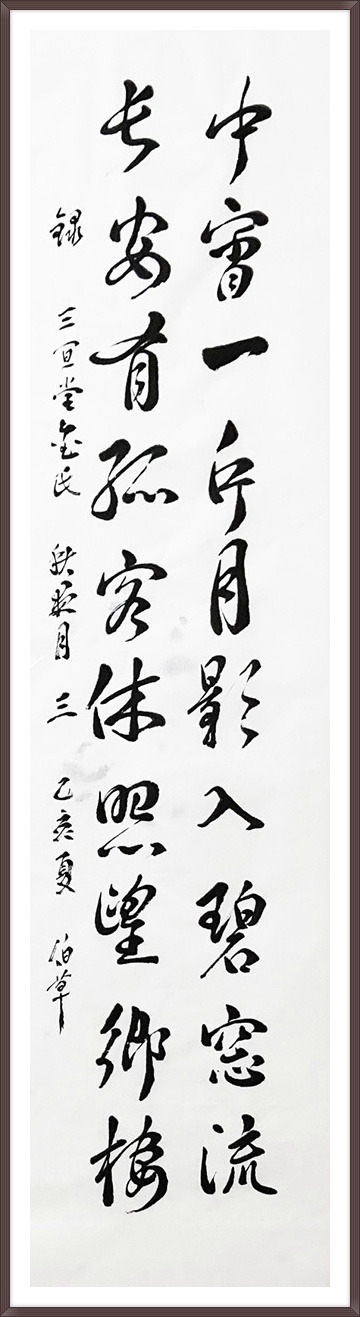 中宵一片月影入碧窓流
长安有孤客休照望鄉楼
録 三宜堂金氏 秋夜月 三 乙亥夏 伯草